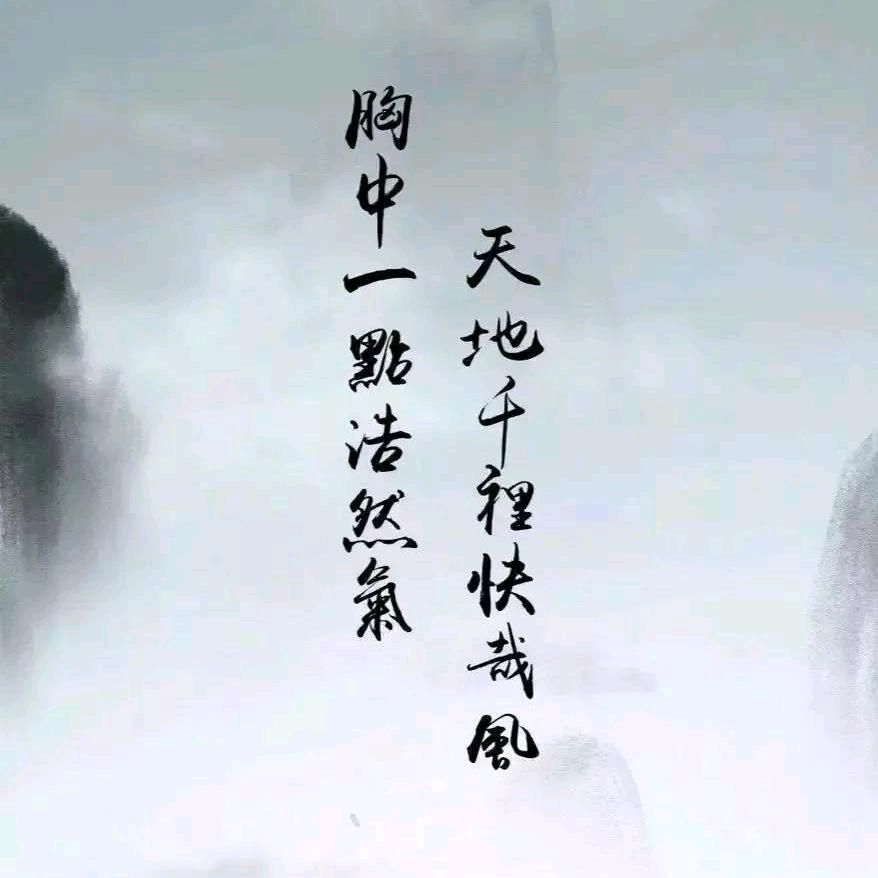 胸中一點浩然氣
天地千裡快哉風